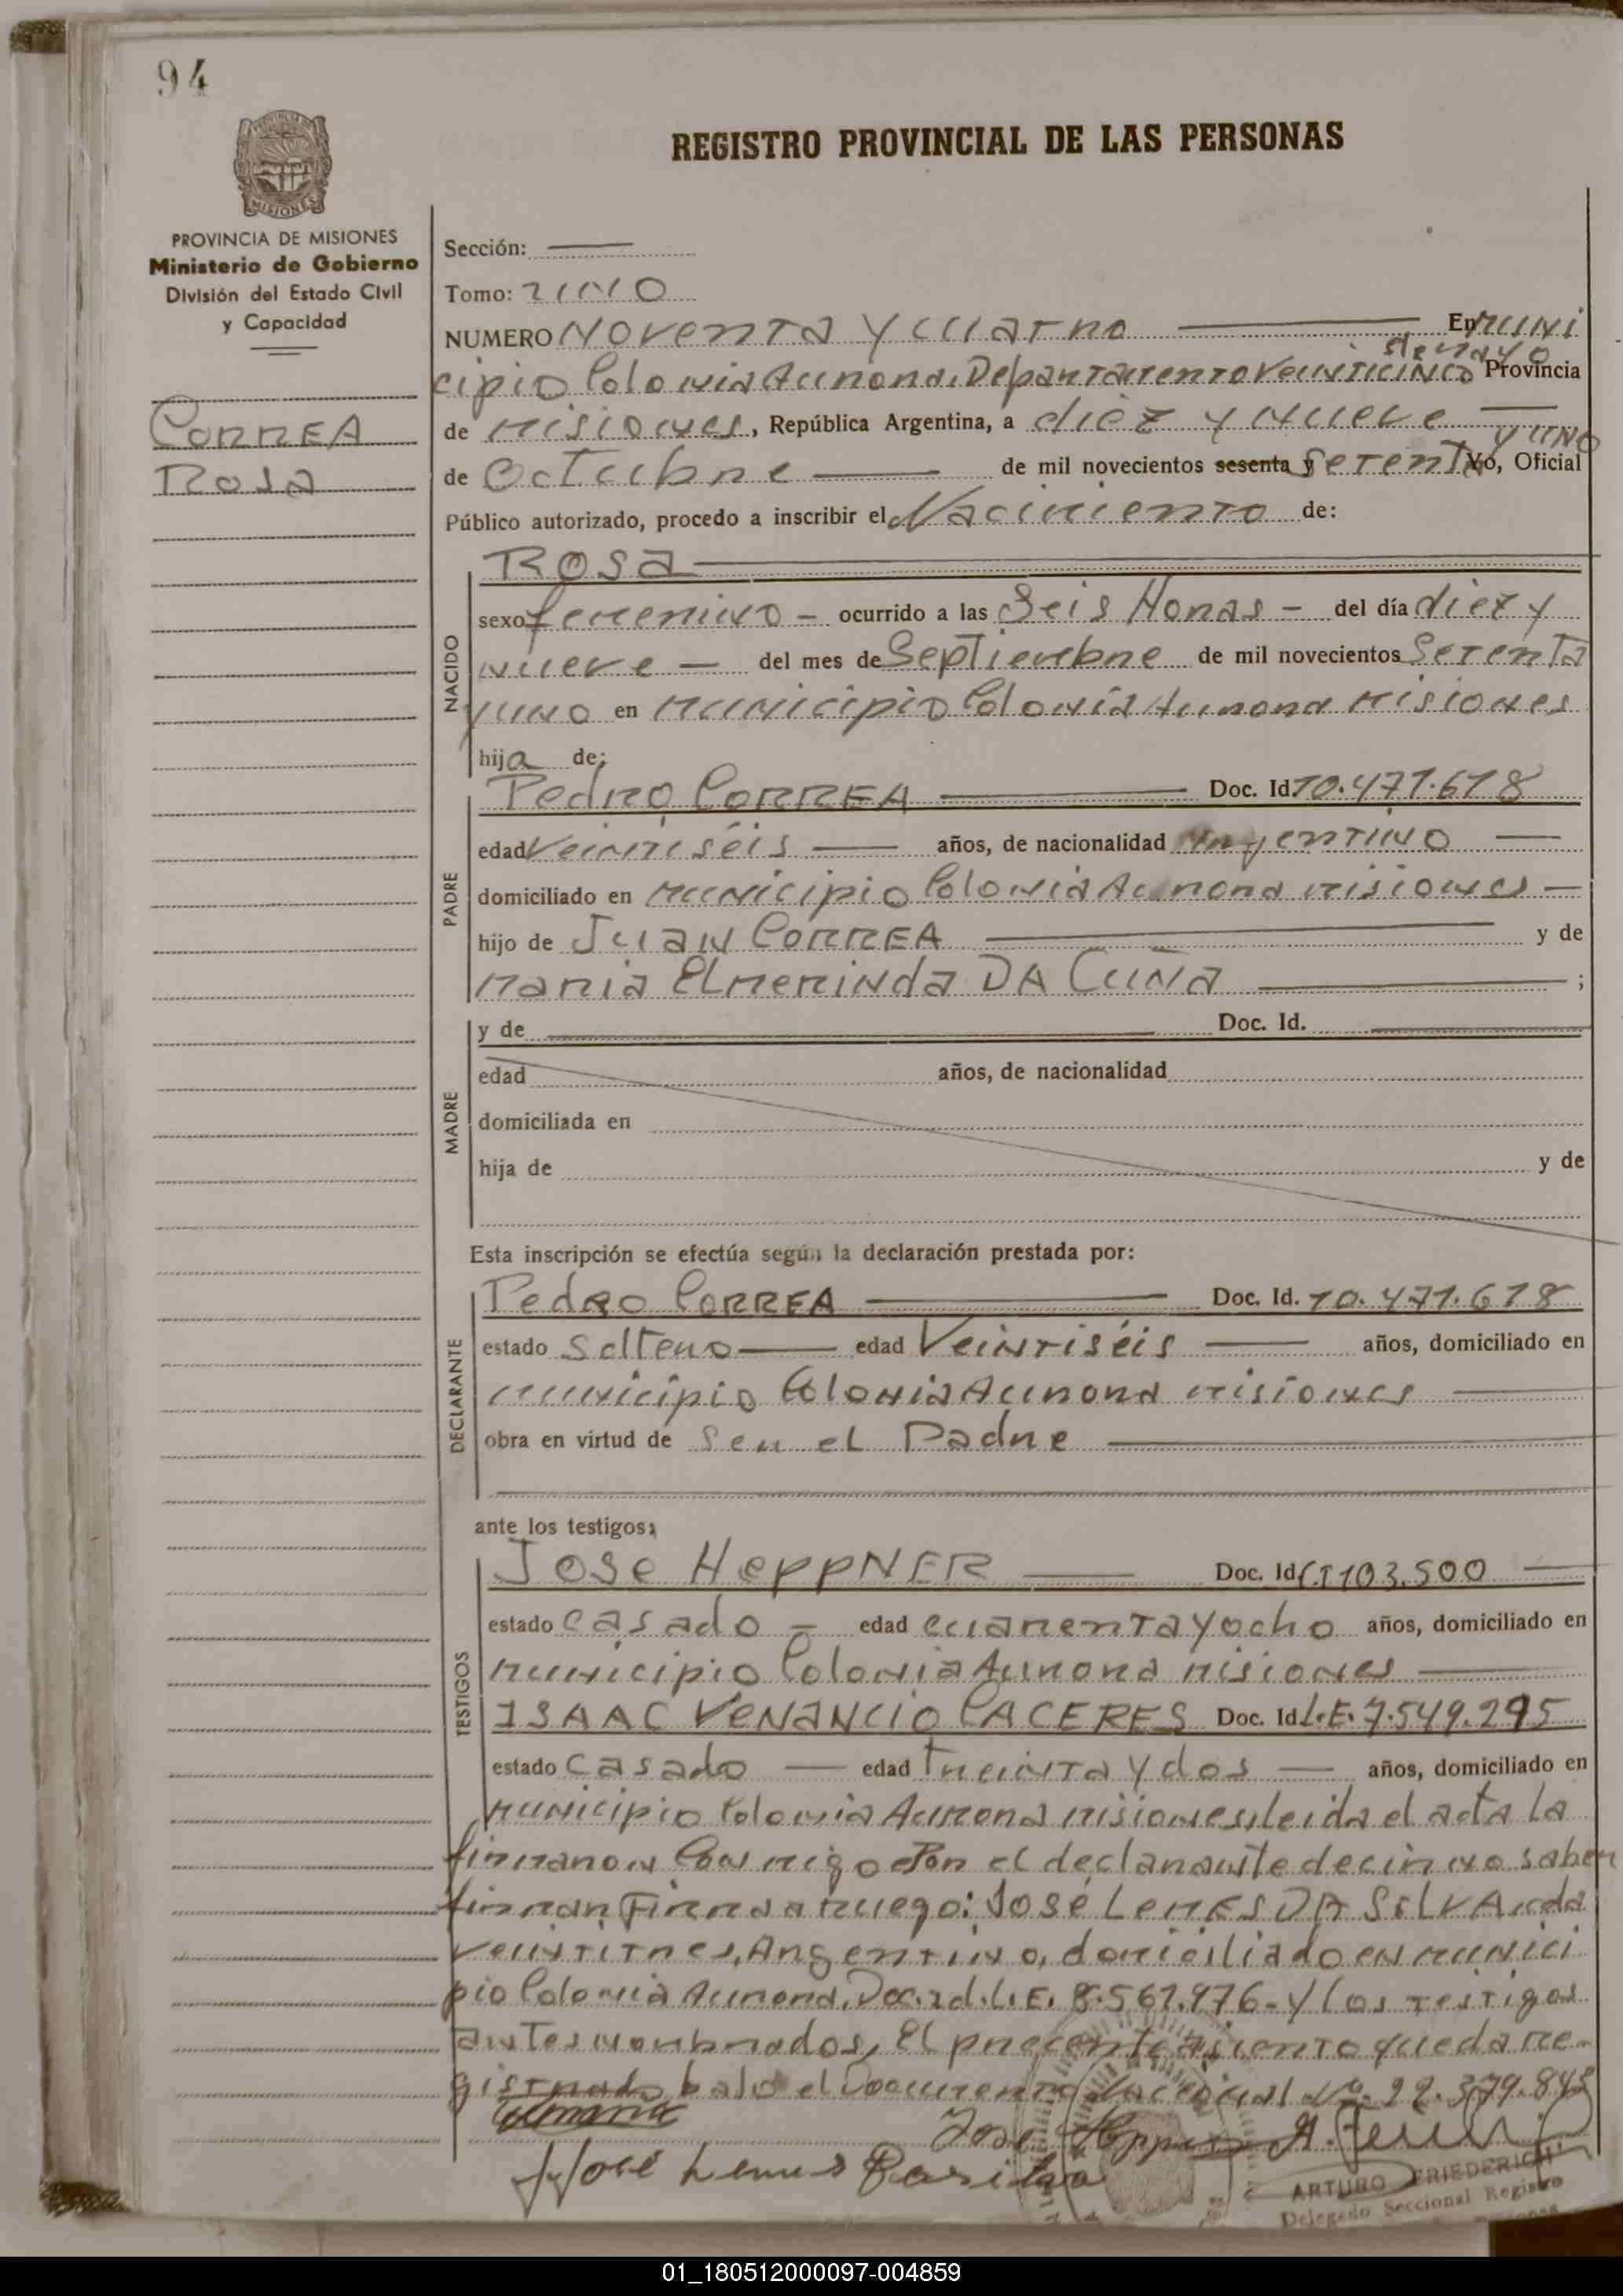 94
REGISTRO PROVINCIAL DE LAS PERSONAS
MISIONES
PROVINCIA DE MISIONES
Ministerio de Gobierno
División del Estado Civil
y Capacidad
CORREA
Rosa
Sección:
Tomo: uno
NUMERO Noventa y cuatro En muni
cipio Colonia Aurora, Departamento Veinticinco de mayo Provincia
de misiones, República Argentina, a diez y nueve
de Octubre de mil novecientos sesenta y Setenta y uno Yo, Oficial
Público autorizado, procedo a inscribir el Nacimiento de:
NACIDO
Rosa
sexo femenino - ocurrido a las Seis Horas - del día diez y
nueve - del mes de Septiembre de mil novecientos Setenta
y uno en municipio Colonia Aurora misiones
hija de:
PADRE
Pedro CORREA Doc. Id 10.471.618
edad Veintiséis años, de nacionalidad Argentino
domiciliado en municipio Colonia Aurora misiones
hijo de Juan CORREA y de
Maria Elmerinda DA Cuña ;
MADRE
y de Doc. Id.
edad años, de nacionalidad
domiciliada en
hija de y de
Esta inscripción se efectúa según la declaración prestada por:
DECLARANTE
Pedro CORREA Doc. Id. 10.471.618
estado Soltero edad Veintiséis años, domiciliado en
municipio Colonia Aurora misiones
obra en virtud de Ser el Padre
ante los testigos:
TESTIGOS
Jose HeppNER Doc. Id C.I 103.500
estado casado - edad cuarenta y ocho años, domiciliado en
municipio Colonia Aurora misiones
ISAAC VENANCIO CACERES Doc. Id L.E. 7.549.295
estado casado edad treinta y dos años, domiciliado en
municipio Colonia Aurora misiones, leida el acta la
firmaron Con migo Por el declarante decir no saber
firmar, Firma a ruego: José Lemes DA SILVA, eda
veintitres, Argentino, domiciliado en munici
pio Colonia Aurora, Doc. id. L.E. 8.561.976 - y los testigos
antes nombrados, El precente asiento queda re-
gistrado bajo el Documento Nacional Nº. 22.379.845
Jose Heppner
José Lemes Dasilva
ARTURO FRIEDERICH
Delegado Seccional Registro
01_180512000097-004859